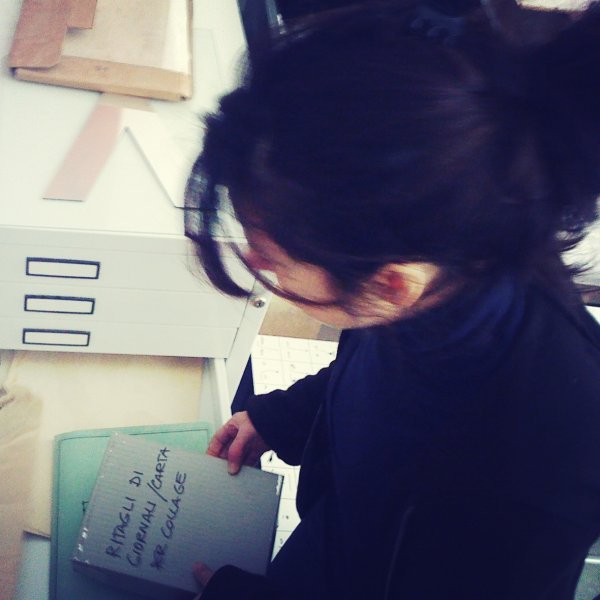 RITAGLI DI
GIORNALI/CARTA
PER COLLAGE